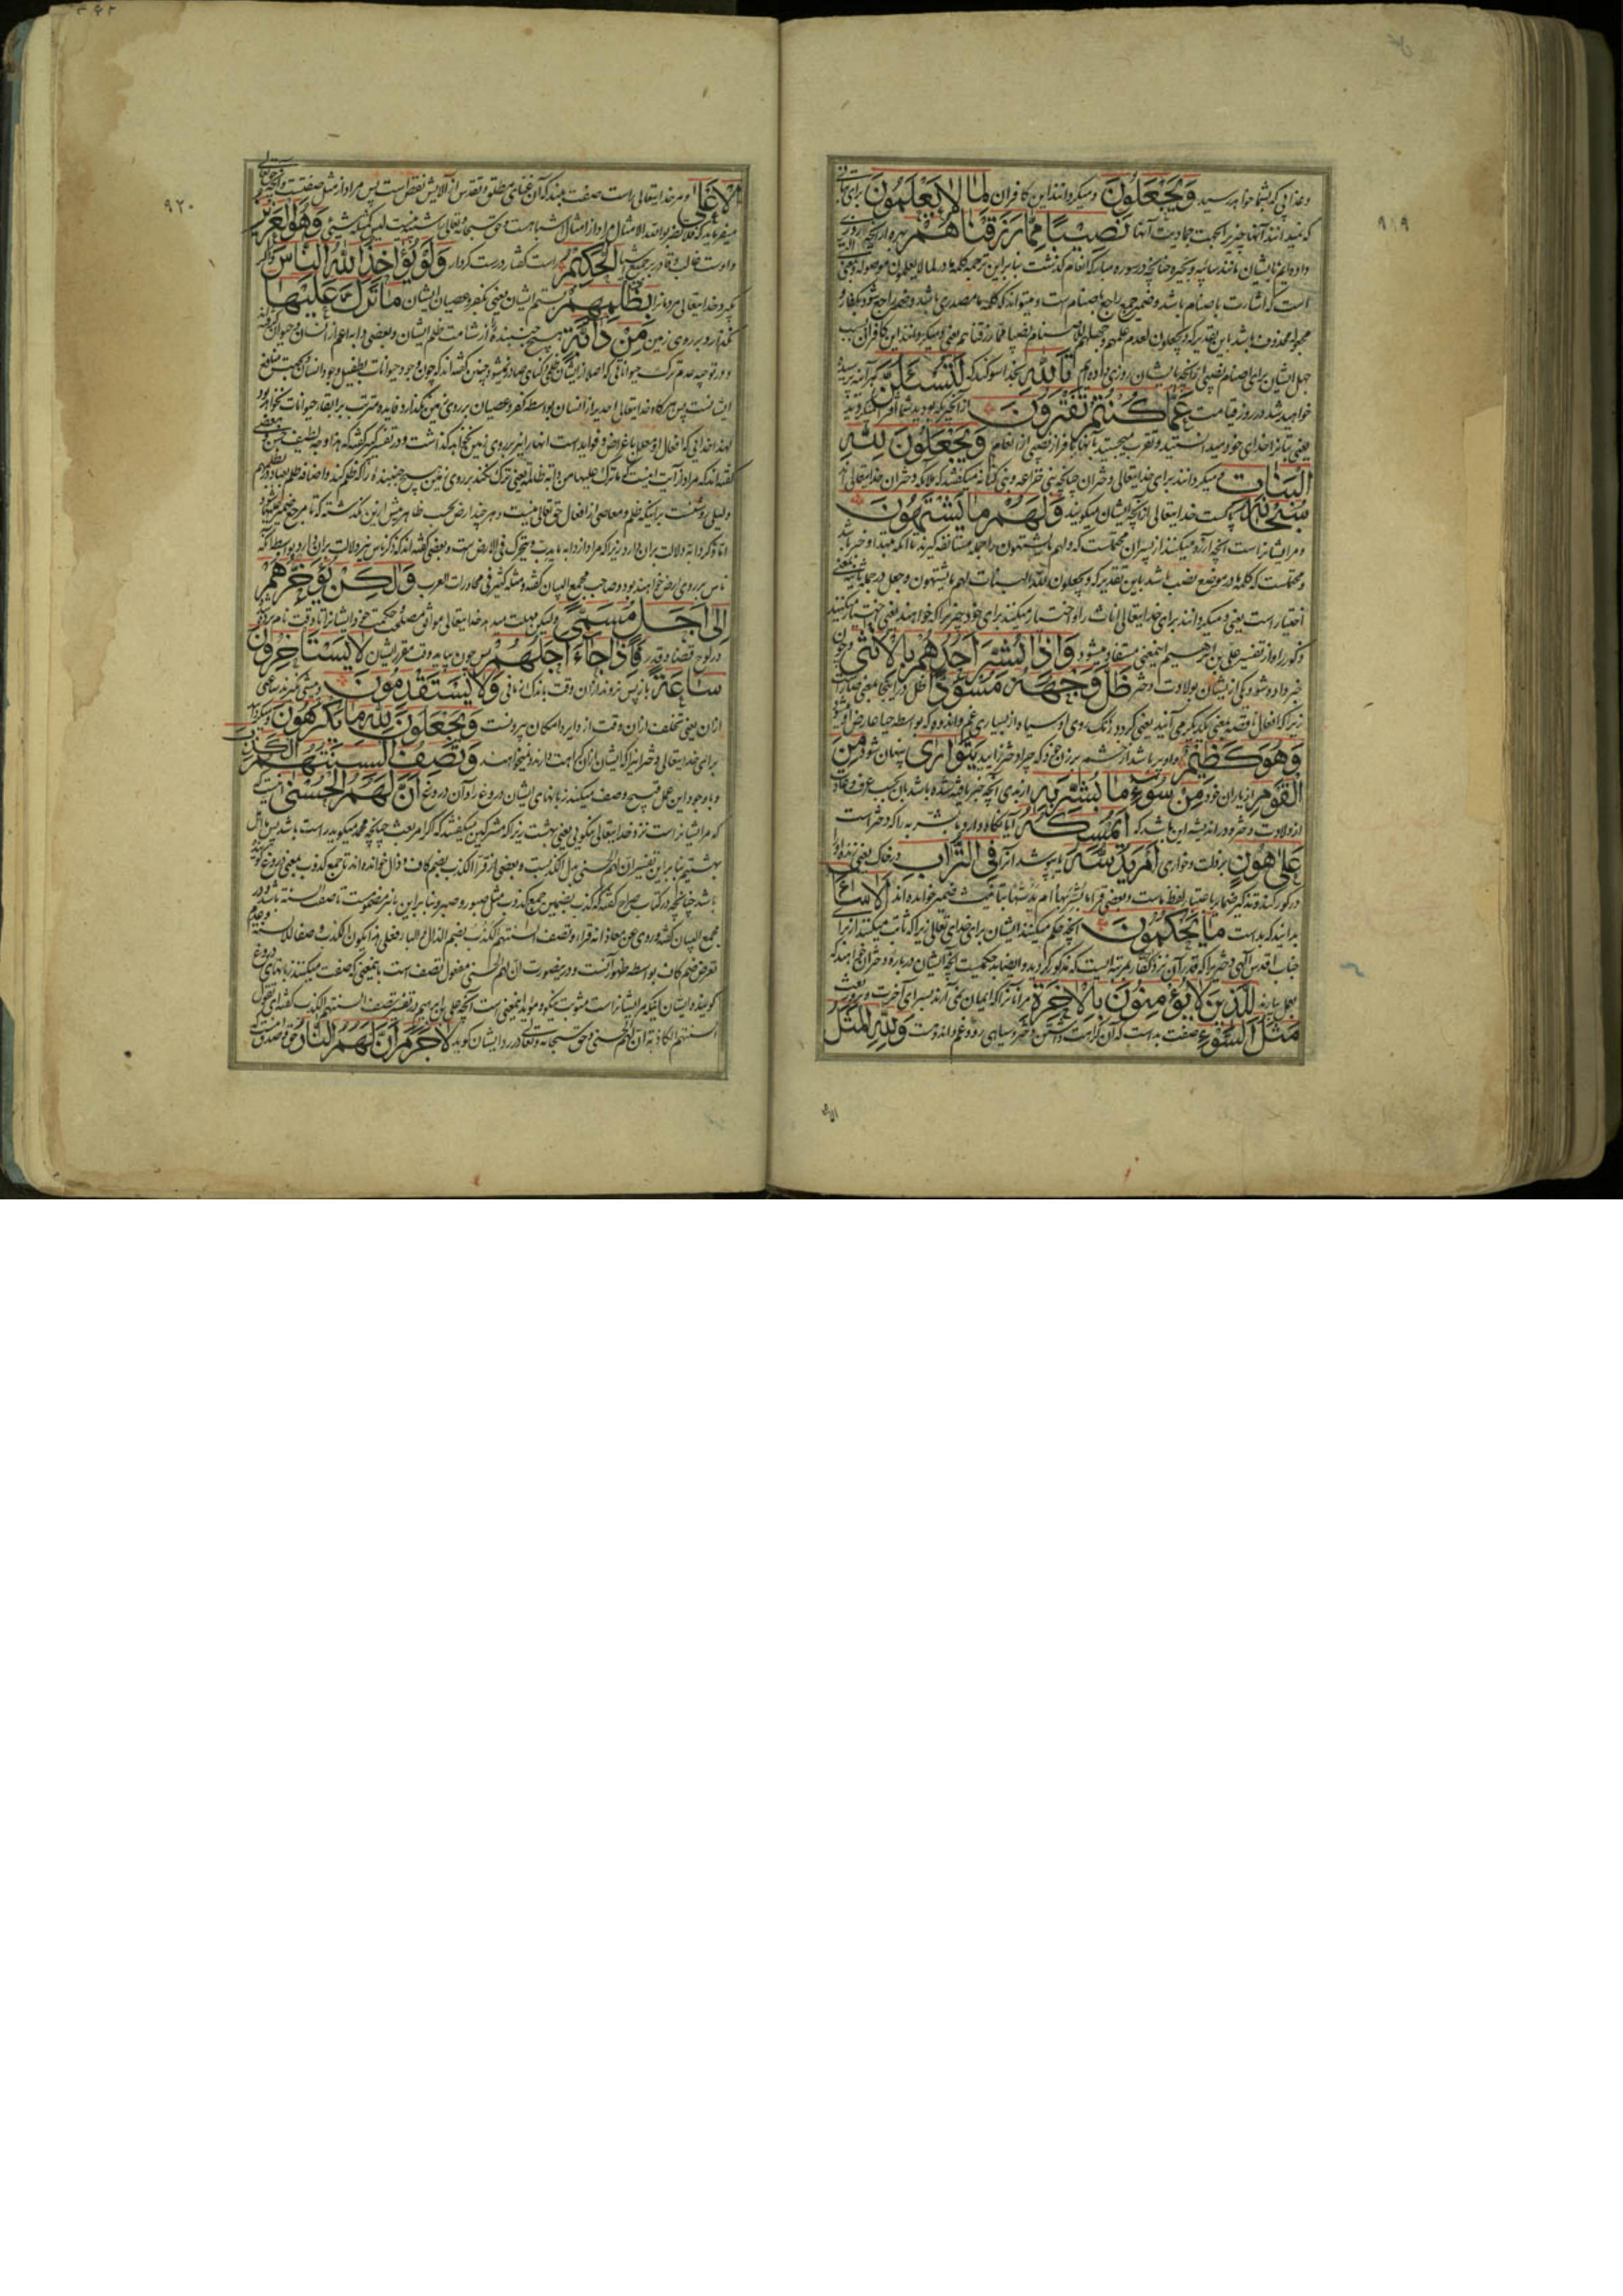 ۹۱۹
وعذابی که بشما خواهد رسید وَيَجْعَلُونَ و میکردانند این کافران لِمَا لَا يَعْلَمُونَ برای بتانی
که نمیدانند آنها چیزیرا بجهت جمادیت آنها نَصِيبًا مِمَّا رَزَقْنَاهُمْ بهره از آنچه روزی
داده‌ایم بایشان مانند سائبه و بحیره چنانچه در سوره مبارکه انعام گذشت بنابراین ترجمه کلمه ما در لما لا یعلمون موصوله
است که اشارت باصنام باشد وضمیر جمع راجع باصنام است و میتواند که کلمه ما مصدری باشد وضمیر راجع شود بکفار و
جهل ایشان برای اصنام نصیبی از آنچه بایشان روزی داده‌ایم تَاللَّهِ بخدا سوکند که لَتُسْئَلُنَّ هر آینه پرسیده
خواهید شد در روز قیامت عَمَّا كُنْتُمْ تَفْتَرُونَ از آنچه که بودید شما
یعنی بتانرا خدای خود میدانستید و تقرب میجستید بآنها بافراز نصیبی از انعام وَيَجْعَلُونَ لِلَّهِ
الْبَنَاتِ و میکردانند برای خدایتعالی دختران چنانچه بنی خزاعه و بنی کنانه میکفتند که ملائکه دختران خدایتعالی‌اند
سُبْحَانَهُ پاکست خدایتعالی از آنچه ایشان میکویند وَلَهُمْ مَا يَشْتَهُونَ
و مر ایشانراست آنچه آرزو میکنند از پسران محتملست که ولهم ما یشتهون را جمله مستانفه کیرند تا آنکه مبتدا و خبر باشد
و محتملست که کلمه ما در موضع نصب باشد باین تقدیر که و یجعلون لله البنات لهم ما یشتهون و جعل در جمله ثانیه بمعنی
اختیار است یعنی و میکردانند برای خدایتعالی اناث را و اختیار میکنند برای خود چیزیرا که خواهند یعنی
ذکور را و از تفسیر علی بن ابراهیم اینمعنی مستفاد میشود وَإِذَا بُشِّرَ أَحَدُهُمْ بِالْأُنْثَى و چون
خبر داده شود یکی از ایشان بولادت دختر ظَلَّ وَجْهُهُ مُسْوَدًّا ظل در اینجا بمعنی صار است
زیرا که افعال ناقصه بمعنی یکدیکر می‌آیند یعنی کردد رنک روی او سیاه از بسیاری غم و اندوه که بواسطه حیا عارض او میشود
وَهُوَ كَظِيمٌ و او پر باشد از خشم بر زن خود که چرا دختر زایید يَتَوَارَى پنهان شود مِنَ
الْقَوْمِ از یاران خود مِنْ سُوءِ مَا بُشِّرَ بِهِ از بدی آنچه خبر یافته شده باشد بآن بحسب عرف و عادت
از ولادت دختر و در اندیشه این باشد که أَيُمْسِكُهُ آیا نکاه دارد مبشر به را که دختر است
عَلَى هُونٍ بر مذلت و خواری أَمْ يَدُسُّهُ یا بپوشد آنرا فِي التُّرَابِ در خاک یعنی زنده او را
در کور کند تذکیر ضمایر باعتبار لفظ ماست و بعضی قراء ما بشر بها ام یدسها بتانیث ضمیر خوانده‌اند أَلَا سَاءَ
بدانید که بد است مَا يَحْكُمُونَ آنچه حکم میکنند ایشان برای خدای تعالی زیرا که ثابت میکنند از برا
جناب اقدس الهی دختریرا که قدر آن نزد کفار بمرتبه ایست که مذکور کردید و ایضا بد حکمیست آنچه ایشان درباره دختران خواهند که
بعمل بیارند لِلَّذِينَ لَا يُؤْمِنُونَ بِالْآخِرَةِ مر آنانرا که ایمان نمی‌آرند بسرای آخرت و بروز بعث
مَثَلُ السَّوْءِ صفت بد است که آن کراهت داشتن دختر و سیاهی رو و غم و اندوهست وَلِلَّهِ الْمَثَلُ
الاعلی
۹۲۰
الْأَعْلَى و مر خدایتعالی راست صفت بلند که آن غنای مطلق و تقدس از آلایش نقص است پس مراد از مثل صفتست
میفرماید که فلا تضربوا لله الامثال مراد از امثال اشباهست و حق سبحانه و تعالی لیس کمثله شیء وَهُوَ الْعَزِيزُ
و اوست غالب و قادر بر جمیع اشیاء الْحَكِيمُ راست کفتار درست کردار وَلَوْ يُؤَاخِذُ اللَّهُ النَّاسَ و اکر
بکیرد خدایتعالی مردمانرا بِظُلْمِهِمْ بستم ایشان یعنی بکفر و عصیان ایشان مَا تَرَكَ عَلَيْهَا
نکذارد بر روی زمین مِنْ دَابَّةٍ هیچ جنبنده را از شامت ظلم ایشان و بعضی دابه اعم از انسان و حیوان
و در توجیه عدم ترک حیواناتی که اصلا از ایشان ظلمی و کناهی صادر نمیشود چنین کفته‌اند که چون وجود حیوانات بطفیل وجود انسان
ایشانست پس هر کاه خدایتعالی احدیرا از انسان بواسطه کفر و عصیان بر روی زمین نکذارد فایده مترتب بر ابقاء حیوانات نخواهد بود
لهذا خدایی که افعال او معلل باغراض و فواید است آنهارا نیز بر روی زمین نخواهد کذاشت و در تفسیر کبیر کفته که هذا وجه لطیف حسن و بعضی
کفته‌اند که مراد از آیت اینست که ما ترک علیها من دابة ظالمة یعنی ترک نکند بر روی زمین هیچ جنبنده را که ظلم کند و اضافه ظلم بعباد
دلیلی روشنست بر اینکه ظلم و معاصی از افعال حق تعالی نیست و هر چند ارض بحسب ظاهر پیش ازین نکذشته که تا مرجع ضمیر علیها شود
اما ذکر دابه دلالت بر آن دارد زیرا که مراد از دابه ما یدب و یتحرک فی الارض است و بعضی کفته‌اند که ذکر ناس نیز دلالت بر آن دارد بواسطه آنکه
ناس بر روی ارض خواهند بود و صاحب مجمع البیان کفته و مثله کثیر فی محاورات العرب وَلَكِنْ يُؤَخِّرُهُمْ
إِلَى أَجَلٍ مُسَمًّى و لیکن مهلت میدهد خدایتعالی موافق مصلحت و حکمت خود ایشانرا تا وقت نام برده
در لوح قضا و قدر فَإِذَا جَاءَ أَجَلُهُمْ پس چون بیاید وقت مقرر ایشان لَا يَسْتَأْخِرُونَ
سَاعَةً باز پس نروند از آن وقت باندک زمانی وَلَا يَسْتَقْدِمُونَ و پیشی نکیرند ساعتی
از آن یعنی تخلف از آن وقت از دایره امکان بیرونست وَيَجْعَلُونَ لِلَّهِ مَا يَكْرَهُونَ و میکردانند
برای خدایتعالی دختر زیرا که ایشان از آن کراهت دارند و نمیخواهند وَتَصِفُ أَلْسِنَتُهُمُ الْكَذِبَ
و با وجود این عمل قبیح وصف میکند زبانهای ایشان دروغ را و آن دروغ أَنَّ لَهُمُ الْحُسْنَى آنست که
که مر ایشانراست نزد خدایتعالی نیکویی یعنی بهشت زیرا که مشرکین میکفتند که اکر امر بعث چنانچه محمد میکوید راست باشد پس ما اهل
بهشتیم بنابراین تفسیر ان لهم الحسنی بدل الکذبست و بعضی از قراء الکذب بضم کاف و ذال خوانده‌اند تا جمع کذوب بمعنی دروغ کو
باشد چنانچه در کتاب صراح کفته که کذب بضمتین جمع کذوب مثل صبور و صبر و بنابراین باء نیز مضمومست تا صفت السنه باشد و در
مجمع البیان کفته و روی عن معاذ انه قراء و تصف السنتهم الکذب بضم الذال و الباء فعلی هذا یکون الکذب وصفا للالسنة و عدم
تعرض ضم کاف بواسطه ظهور آنست و درینصورت ان لهم الحسنی مفعول تصف است باینمعنی که صفت میکنند زبانهای دروغ
کوینده ایشان اینکه مر ایشانراست مثوبت نیکو و مؤید اینمعنی است آنچه علی بن ابراهیم در تفسیر تصف السنتهم الکذب کفته ای تقول
السنتهم الکاذبة ان لهم الحسنی و حق سبحانه و تعالی در رد ایشان کوید لَا جَرَمَ أَنَّ لَهُمُ النَّارَ